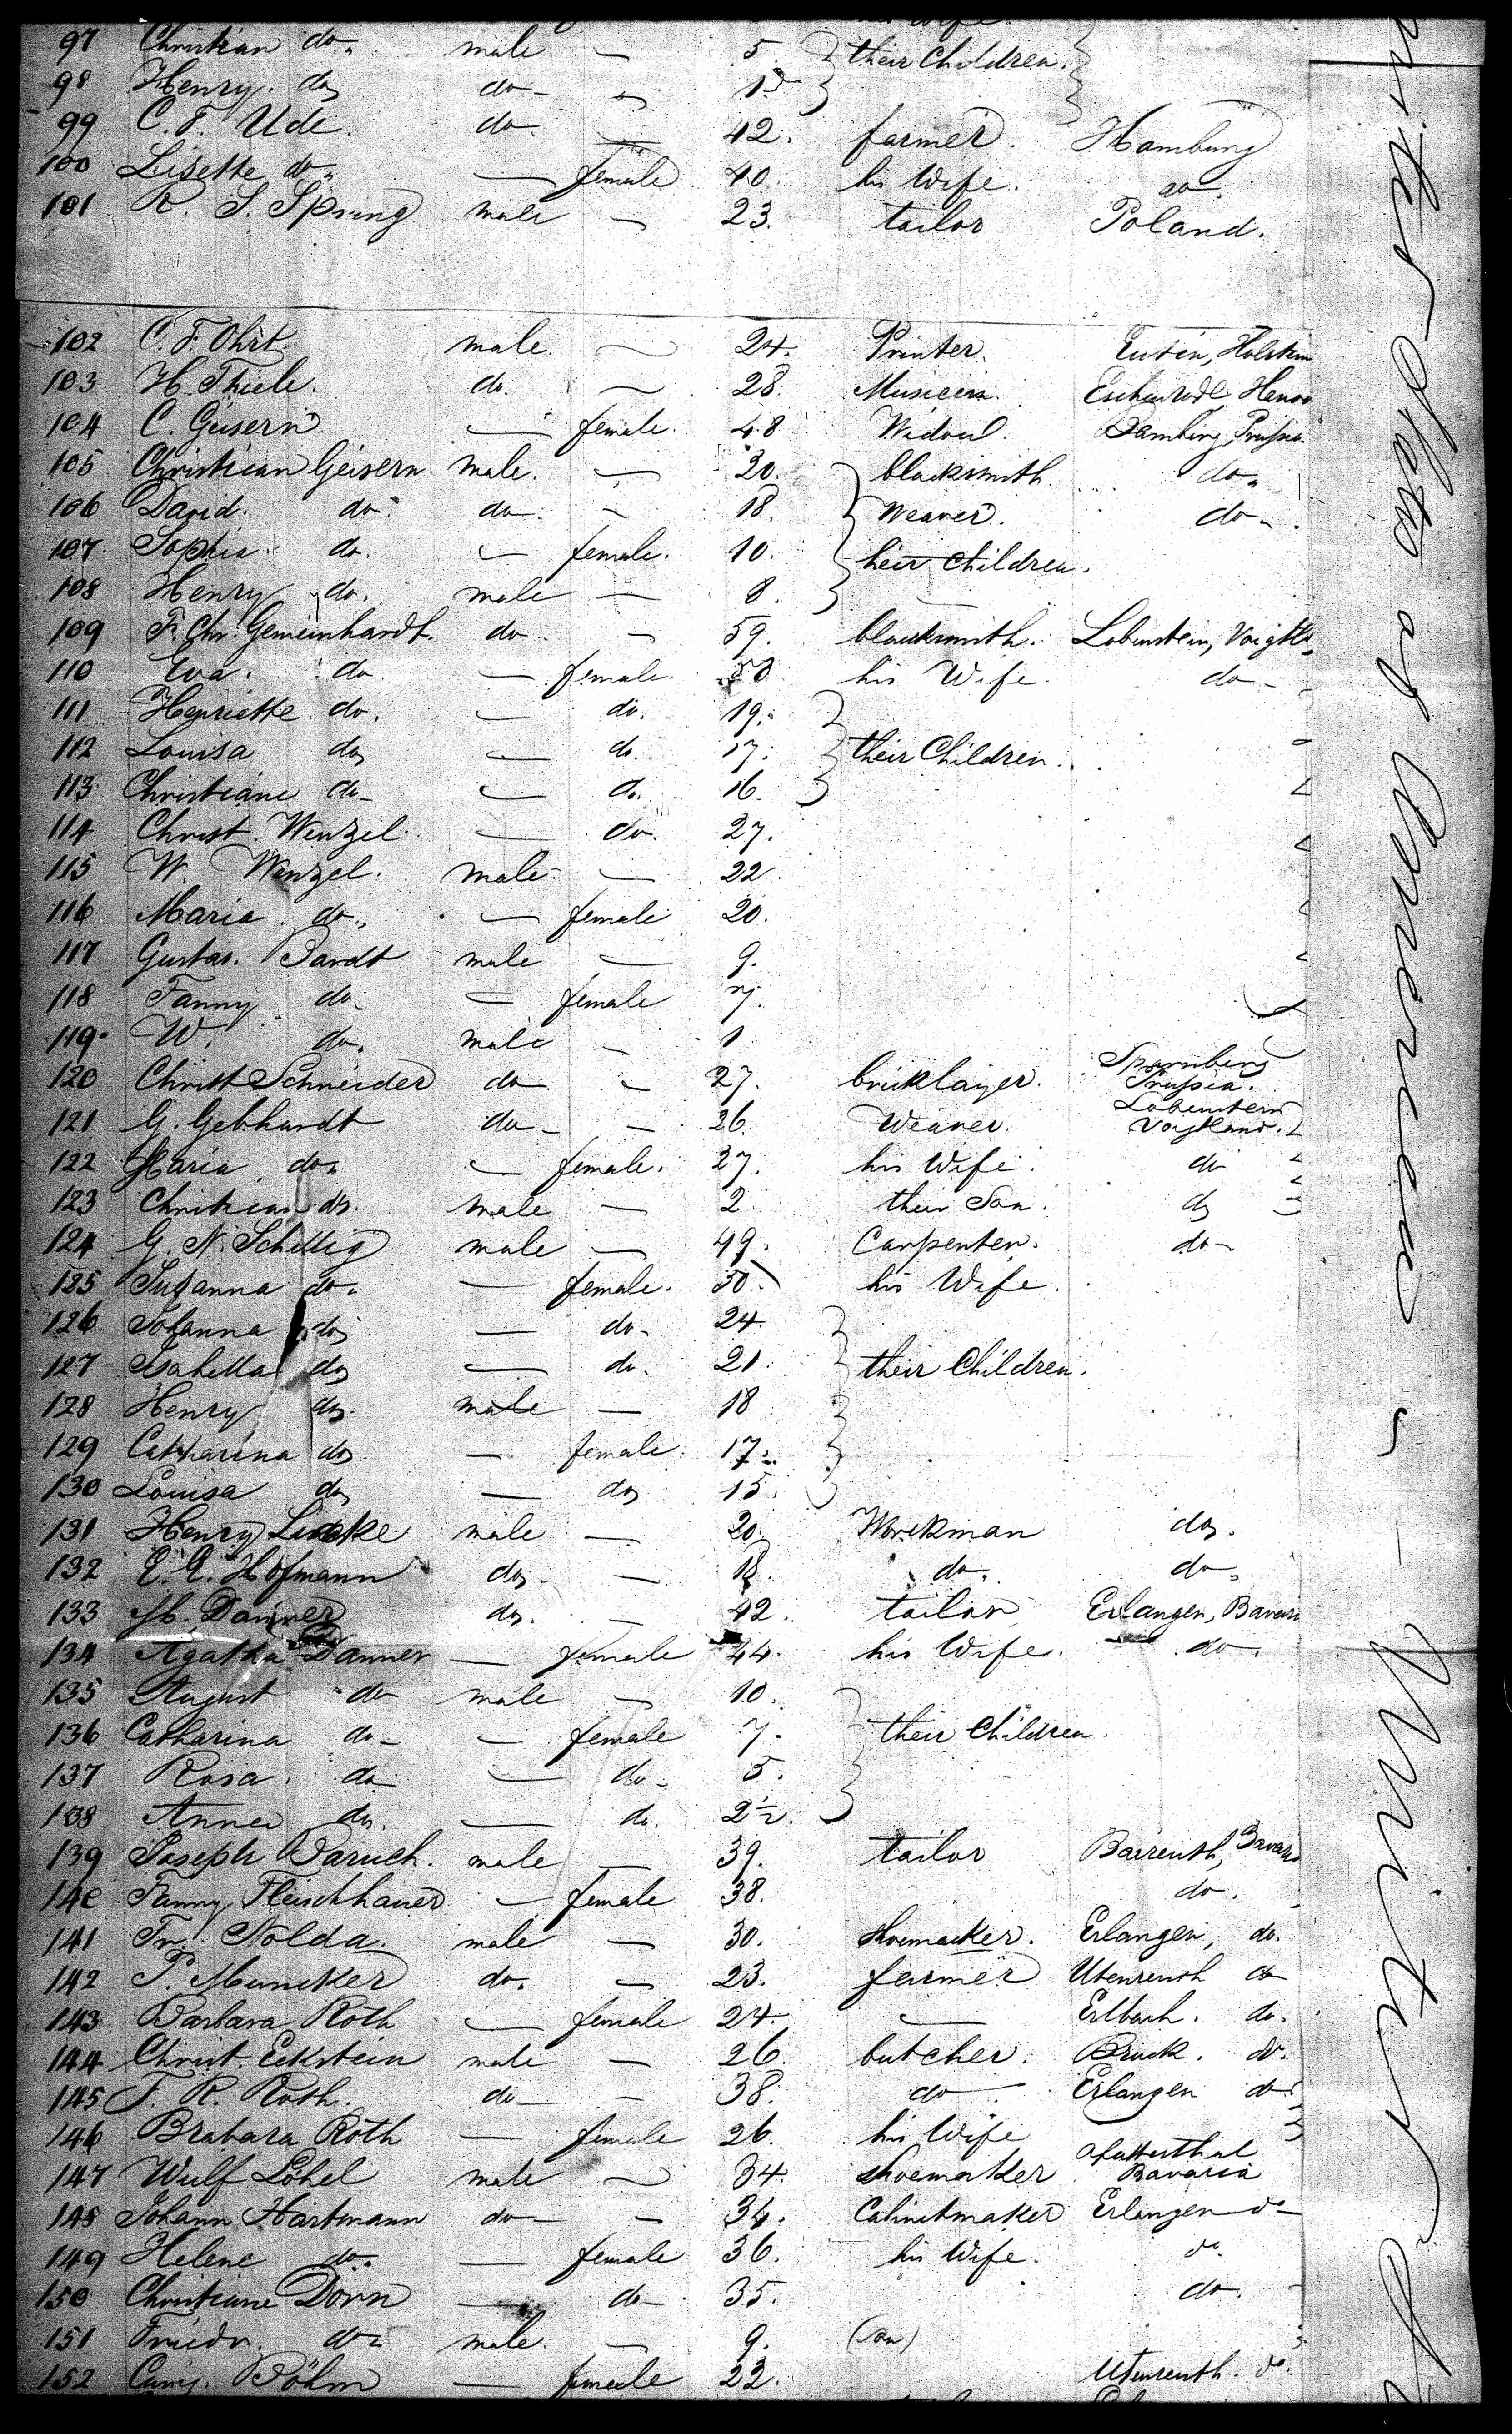 his Wife.
97 Christian do. male — 5. their Children.
98 Henry. do do — 1
99 C. F. Ude. do — 42. farmer. Hamburg
100 Lisette do. — female 40. his Wife. do
101 R. S. Spring male — 23. tailor Poland.
102 C. F. Ohrt male. — 24. Printer. Eutin, Holstein
103 H. Thiele. do. — 28. Musicien. Hanov
104 C. Geisern — female. 48 Widow. Prussia.
105 Christian Geisern male. — 20. blacksmith. do.
106 David. do. do. — 18. Weaver. do.
107. Sophia. do. — female. 10. heir children.
108 Henry do. male — 8.
109 F. Chr. Gemeinhardt. do. — 59. blacksmith. Lobenstein, Voigtl
110 Eva. do — female. 50 his Wife. do
111 Henriette do. — do. 19.
112 Louisa do — do. 17. their Children.
113 Christiane do — do. 16.
114 Christ. Wenzel. — do. 27.
115 W. Wenzel. male — 22.
116 Maria do. — female 20.
117 Gustav. Bardt male — 9.
118 Fanny do — female 7.
119. W. do. male — 1
120 Christ Schneider do — 27. bricklayer. Sparnberg Prussia.
121 G. Gebhardt do — 26. Weaver. Lobenstein Voigtland.
122 Maria do. — female. 27. his Wife. do
123 Christian do. male — 2. their Son. do
124 G. N. Schillig male — 49. Carpenter. do
125 Susanna do. — female. 50. his Wife.
126 Johanna do — do 24.
127 Isabella do — do. 21. their Children.
128 Henry do. male — 18
129 Catharina do — female. 17.
130 Louisa do — do 15.
131 Henry male — 20. Workman do.
132 E. E. Hofmann do. — 18. do. do.
133 M. Danner do. — 42. tailor Erlangen, Bavari
134 Agatha Danner — female 44. his Wife. do.
135 August do male — 10.
136 Catharina do — female 7. their Children.
137 Rosa. do — do 5.
138 Anna do. — do. 2½.
139 Joseph Baruch. male — 39. tailor Baireuth, Bavaria
140 Fanny Fleischhauer — female 38. do.
141 Fr. Nolda. male — 30. shoemacker. Erlangen, do.
142 P. Muncker do. — 23. farmer Utenreuth do
143 Barbara Roth — female 24. — Erlbach. do.
144 Christ. Eckstein male — 26. butcher. Bruck. do.
145 F. R. Roth. do — 38. do Erlangen do
146 Brabara Roth — female 26. his Wife
147 Wulf Löhel male — 34. shoemaker Bavaria
148 Johann Hartmann do — 34. Cabinetmaker Erlangen do
149 Helene do. — female 36. his Wife. do.
150 Christiane Dorn — do 35. do.
151 Friedr. do male. — 9. (son)
152 Böhm — female 22. Utenreuth. do.
United States of America